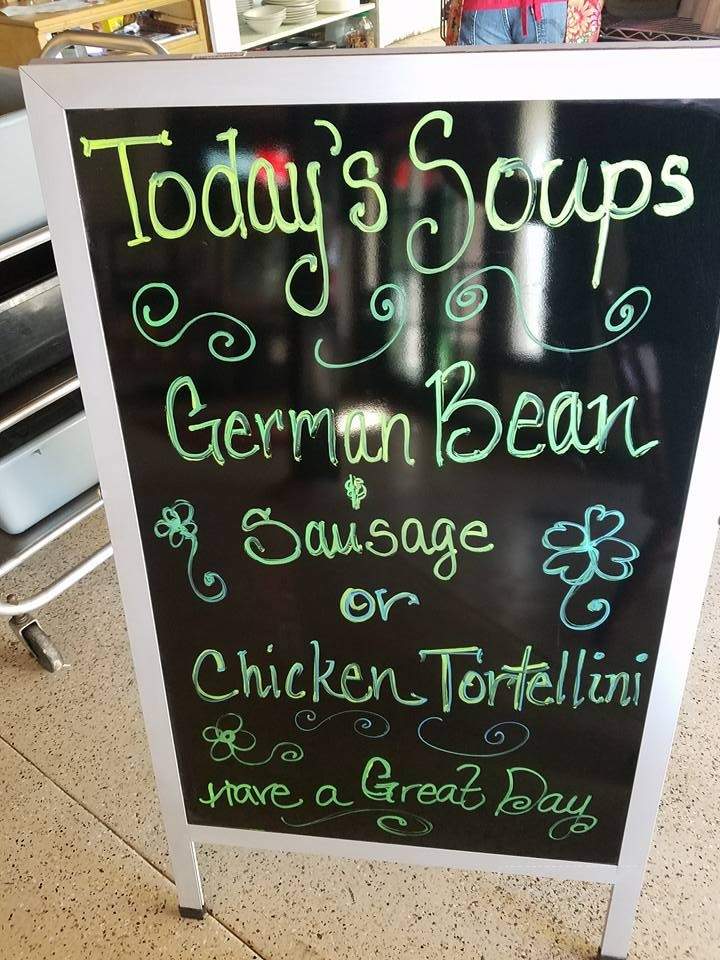 Today's Soups
German Bean
&
Sausage
or
Chicken Tortellini
Have a Great Day